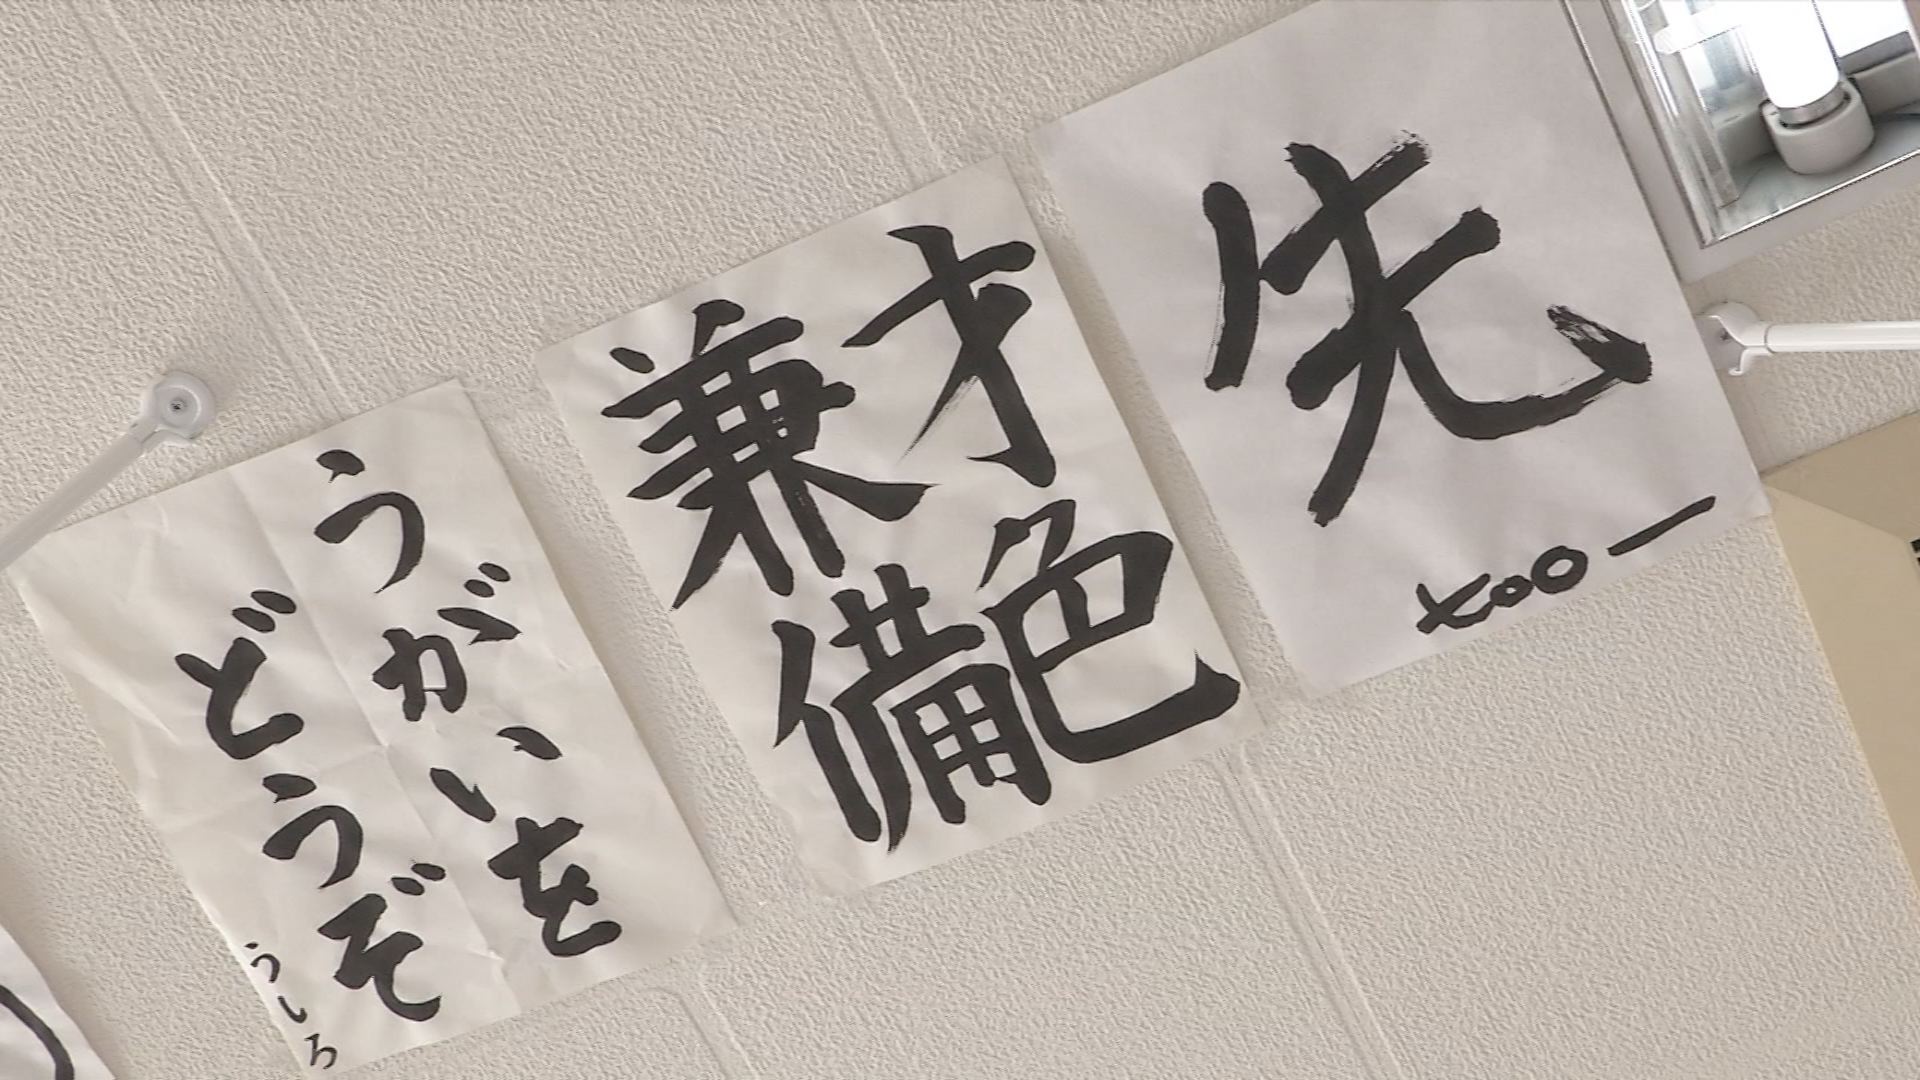 先
too ー
才色
兼備
うがいを
どうぞ
うしろ